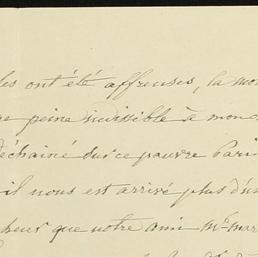 les ont été affreuses, la mo
e peine invisible à mon
déchainé sur ce pauvre Pari
il nous est arrivé plus d'un
heur que notre ami Mr mar